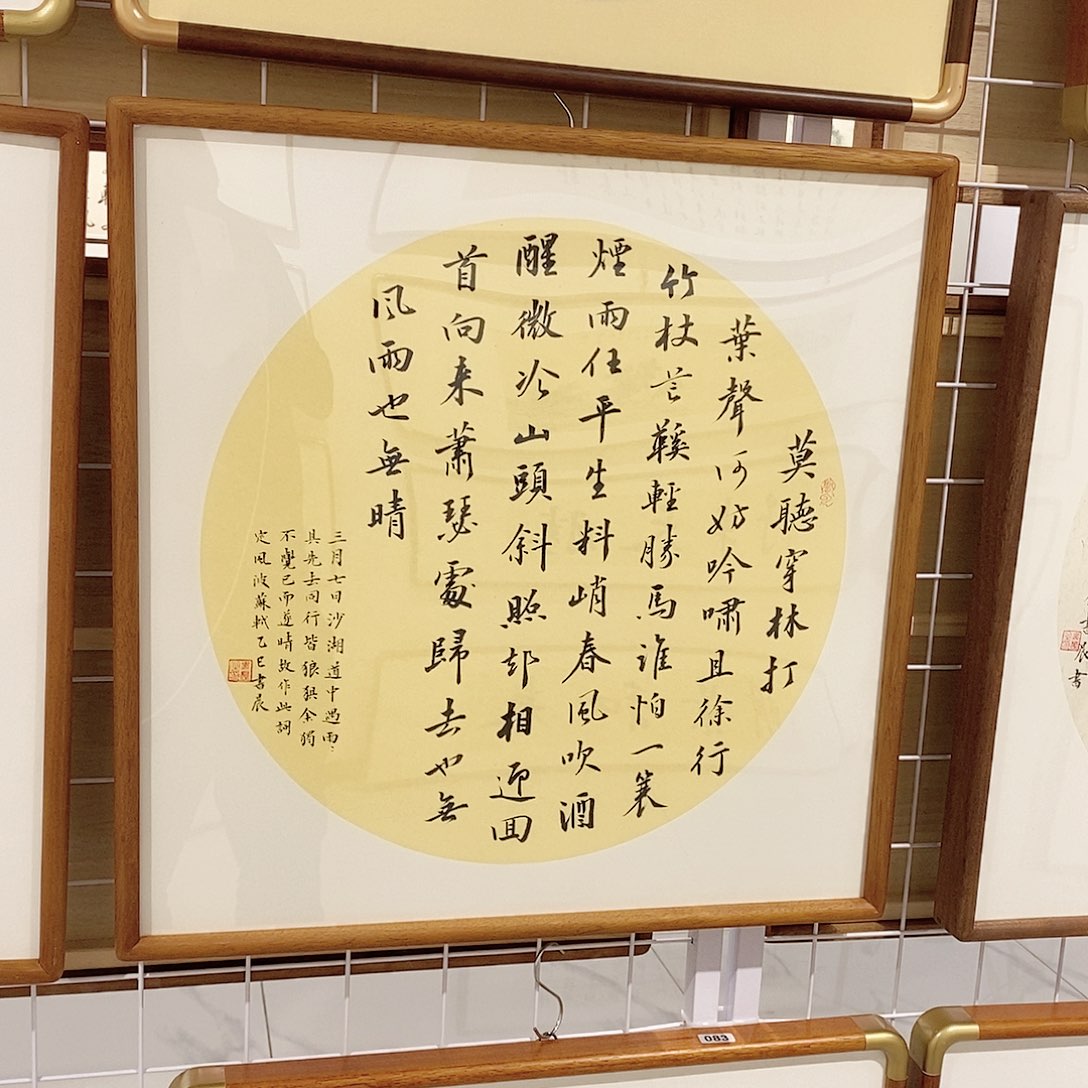 莫聽穿林打
葉聲何妨吟嘯且徐行
竹杖芒鞵輕勝馬誰怕一蓑
煙雨任平生料峭春風吹酒
醒微冷山頭斜照却相迎囬
首向来蕭瑟處歸去也無
風雨也無晴
三月七日沙湖道中遇雨〻
具先去同行皆狼狽余獨
不覺已而遂晴故作此詞
定風波蘇軾乙巳書辰
083